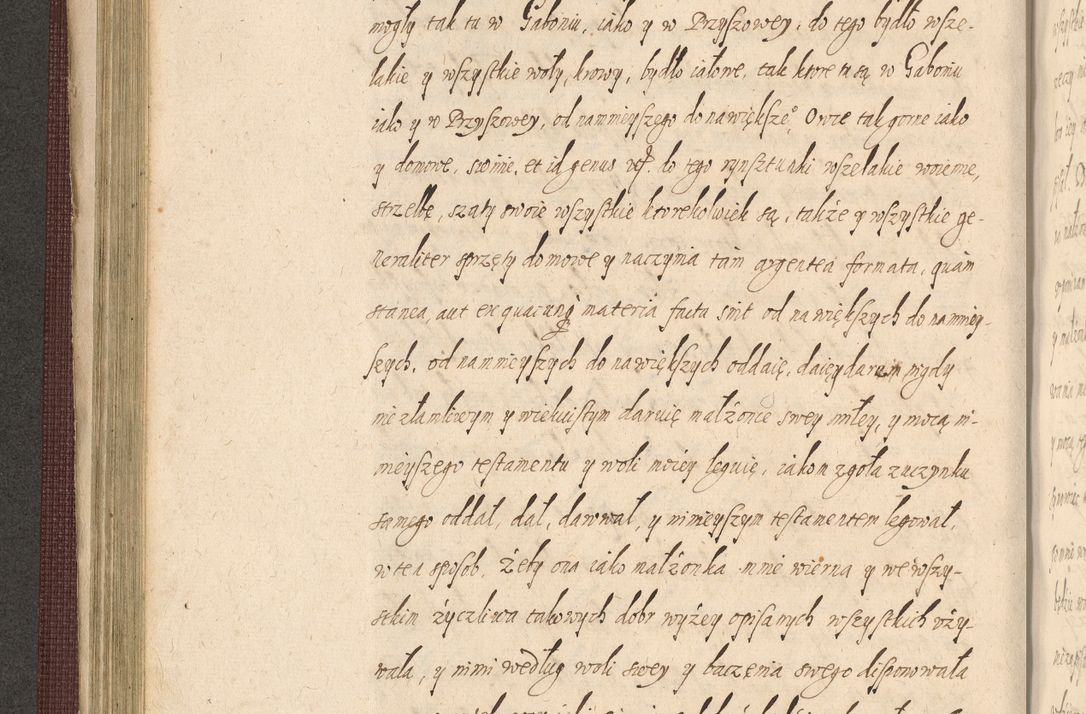 mogły tak tu w Gaboniu, iako y w Przyszowey, do tego bydło wsze-
lakie y wszystkie woły, krowy, bydło iałowe, tak ktore tu są w Gaboniu
iako y w Przyszowey, od namnieyszego do nawiększe° Owce tak gorne iako
y domowe, swinie, et id genus do tego rynsztunki wszelakie woienne,
strzelbę, szaty swoie wszystkie ktorekolwiek są, także y wszystkie ge-
neraliter sprzęty domowe y naczynia tam argentea formata, quam
stanea, aut ex quacunq materia facta sint od nawiększych do namniey-
szych, od namnieyszych do nawiększych oddaię, daię y darem nigdy
niezłamliwym y wiekuistym daruię małżonce swey miłey, y mocą ni-
nieyszego testamentu y woli moiey leguię, iakom zgoła z uczynku
samego oddał, dał, darował, y ninieyszym testamentem legował,
w ten sposob, żeby ona iako małżonka mnie wierna y we wszy-
stkim życzliwa takowych dobr wyżey opisanych wszystkich uży-
wała, y nimi według woli swey y baczenia swego disponowała